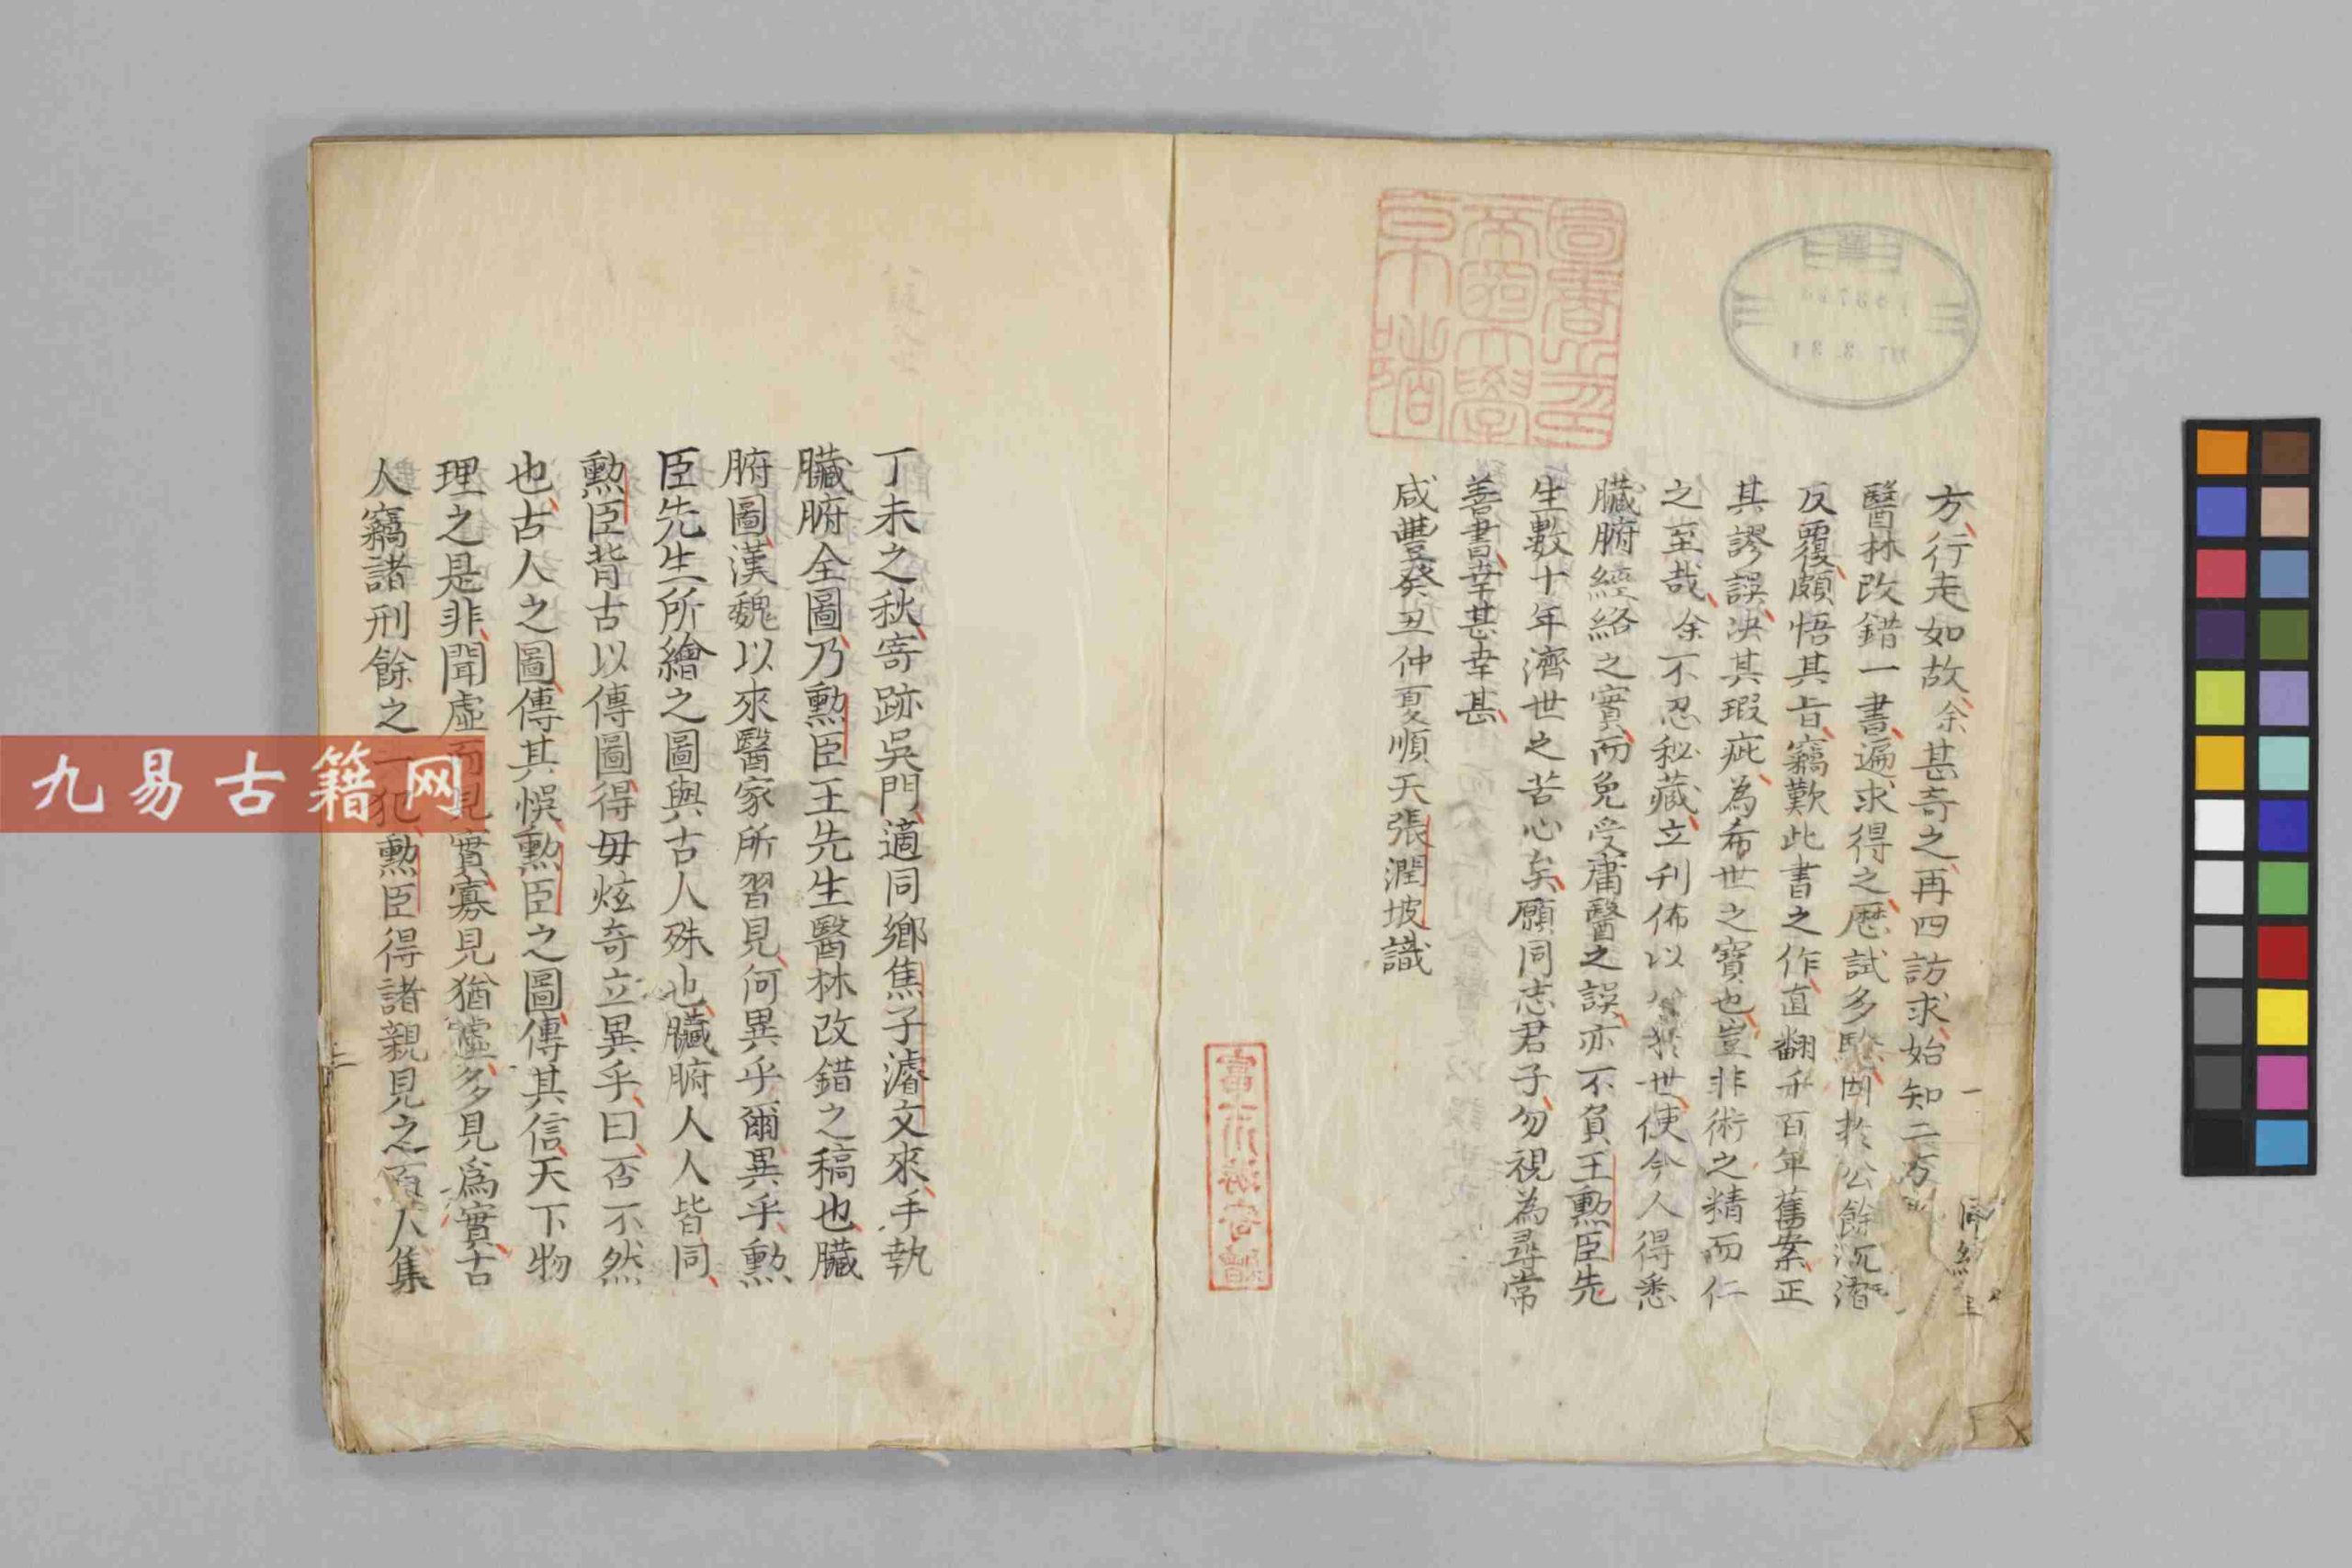 方行走如故余甚奇之再四訪求始知二方
醫林改錯一書遍求得之歷試多驗因於公餘沉潛
反覆頗悟其旨竊歎此書之作直翻千百年舊案正
其謬誤决其瑕疵為希世之寶也豈非術之精而仁
之至哉余不忍秘藏立刊佈以公於世使今人得悉
臟腑經絡之實而免受庸醫之誤亦不負王勲臣先
生數十年濟世之苦心矣願同志君子勿視為尋常
善書幸甚幸甚
咸豐癸丑仲夏順天張潤坡識
圖書之印
帝國大學
京城
富川游寄贈
丁未之秋寄跡吳門適同鄉焦子濬文來手執
臟腑全圖乃勲臣王先生醫林改錯之稿也臟
腑圖漢魏以來醫家所習見何異乎爾異乎勲
臣先生所繪之圖與古人殊也臟腑人人皆同
勲臣背古以傳圖得毋炫奇立異乎曰否不然
也古人之圖傳其悞勲臣之圖傳其信天下物
理之是非聞虛而見實寡見猶虛多見爲實古
人竊諸刑餘之一犯勲臣得諸親見之百人集
九易古籍网